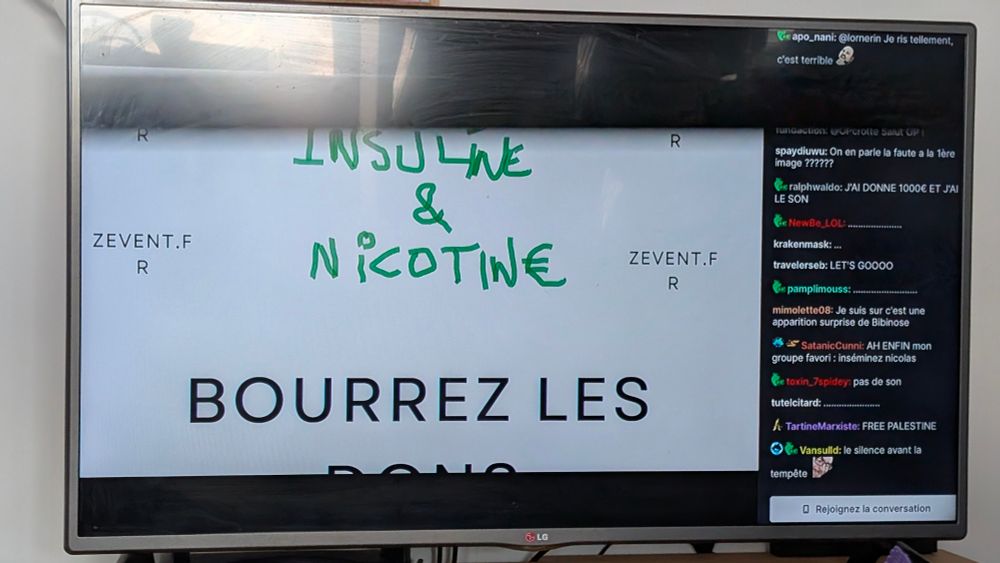 R
R
INSULINE
&
NICOTINE
ZEVENT.F
R
ZEVENT.F
R
BOURREZ LES
DONS
apo_nani: @lornerin Je ris tellement,
c'est terrible
fundaction: @GPcrotte Salut GP !
spaydiuwu: On en parle la faute a la 1ère
image ??????
ralphwaldo: J'AI DONNE 1000€ ET J'AI
LE SON
NewBe_LOL: .....................
krakenmask: ...
travelerseb: LET'S GOOOO
pamplimouss: .........................
mimolette08: Je suis sur c'est une
apparition surprise de Bibinose
SatanicCunni: AH ENFIN mon
groupe favori : inséminez nicolas
toxin_7spidey: pas de son
tutelcitard: ......................
TartineMarxiste: FREE PALESTINE
Vansulld: le silence avant la
tempête
Rejoignez la conversation
LG